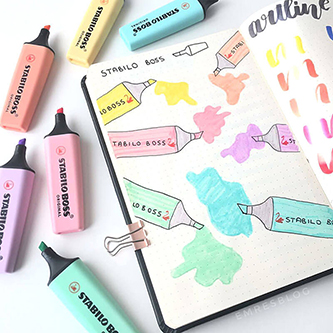 STABILO BOSS
STABILO BOSS
STABILO BOSS
artline
STABILO BOSS
STABILO BOSS
LO BOSS
STABILO BOSS
STABILO BOSS
STABILO BOSS
ORIGINAL
LO BOSS
STABILO BOSS
STABILO BOSS
EMRESBLOG